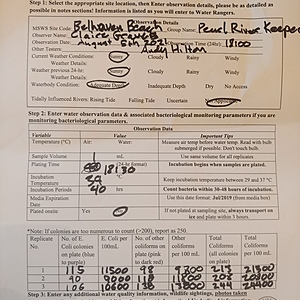 Step 1: Select your appropriate site location, then Enter observation details, please be as detailed as
possible in notes sections! Information is listed as you will enter to Water Rangers.
Observation Details
MSWS Site Code: Belhaven Beach Group Name: Pearl River Keeper
Observer Name: Claire Graves
Observation Date: August 5th 2021 Observation Time (24hr): 18100
Other Testers: Andy Hilton
Current Weather Details: Sunny Cloudy Rainy Windy
Weather Details:
Weather previous 24-hr: Sunny Cloudy Rainy Windy
Weather Details:
Waterbody Condition: Adequate Depth Inadequate Depth Dry No Access
Tidally Influenced Rivers: Rising Falling Tide Uncertain Not Applicable
Step 2: Enter water observation data & associated bacteriological monitoring parameters if you are
monitoring bacteriological parameters.
Observation Data
Variable Value Important Tips
Temperature (°C) Air: Water: Measure air temp before water temp. Read with bulb
submerged if possible. Don't touch bulb.
Sample Volume mL Use same volume for all replicates
Plating Time 18130 (24-hr format) Incubation begins when samples are plated.
Incubation Temperature °C Keep incubation temperature between 29 and 37 °C
Incubation Periods 40 hrs Count bacteria within 30-48 hours of incubation.
Media Expiration Date Use this date format: Jul/2019 (from media box)
Plated onsite Yes No If not plated at sampling site, always transport on
ice and plate within 3 hours.
*Note: If colonies are too numerous to count (>200), report as 250.
Replicate No. No. of E. Coli colonies on plate (blue to purple) E. Coli per 100mL No. of other coliforms on plate (pink to dark red) Other coliforms per 100 mL Total Coliforms on plate (all colonies) Total Coliforms per 100 mL (all colonies)
1 115 11500 98 9800 213 21300
2
3 106 10600 138 13800 244 24400
Step 3: Enter any additional water quality information, wildlife sightings, photos taken